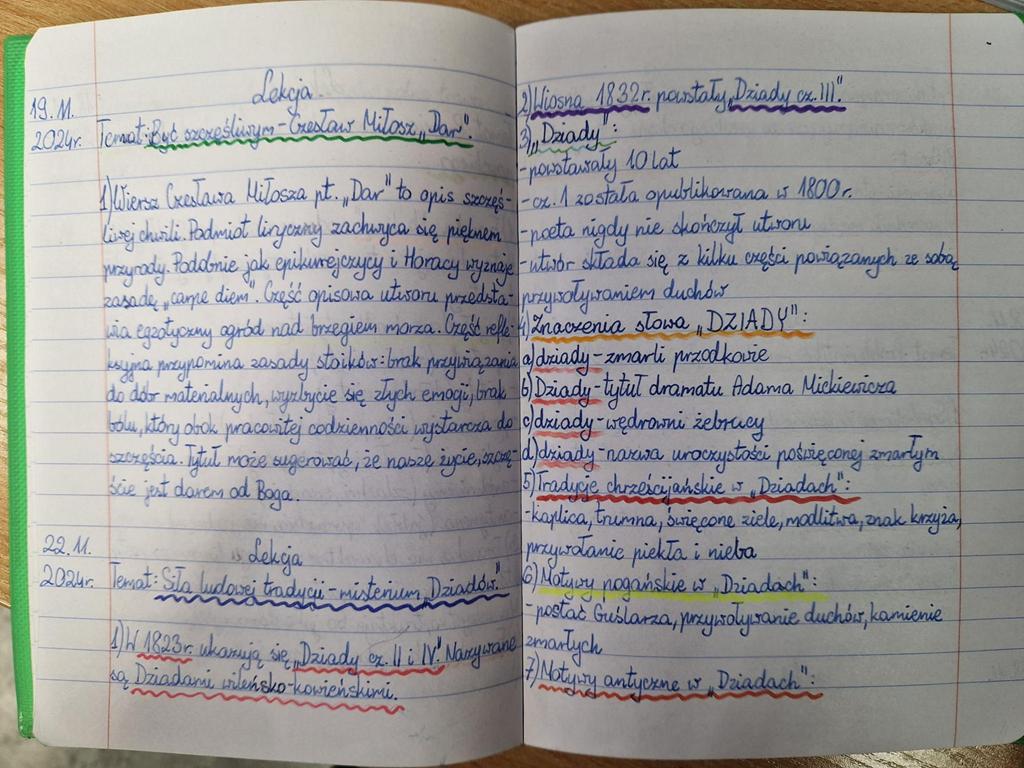 19.11.
2024r.
Lekcja
Temat: Być szczęśliwym - Czesław Miłosz „Dar".
1) Wiersz Czesława Miłosza pt. „Dar" to opis szczęś-
liwej chwili. Podmiot liryczny zachwyca się pięknem
przyrody. Podobnie jak epikurejczycy i Horacy wyznaje
zasadę „carpe diem". Część opisowa utworu przedsta-
wia egzotyczny ogród nad brzegiem morza. Część refle-
ksyjna przypomina zasady stoików: brak przywiązania
do dóbr materialnych, wyzbycie się złych emocji, brak
bólu, który obok pracowitej codzienności wystarcza do
szczęścia. Tytuł może sugerować, że nasze życie, szczę-
ście jest darem od Boga.
22.11.
2024r.
Lekcja
Temat: Siła ludowej tradycji - misterium „Dziadów."
1) W 1823r. ukazują się „Dziady cz. II i IV". Nazywane
są Dziadami wileńsko-kowieńskimi.
2) Wiosna 1832r. powstały „Dziady cz. III".
3) „Dziady":
- powstawały 10 lat
- cz. 1 została opublikowana w 1800r.
- poeta nigdy nie skończył utworu
- utwór składa się z kilku części powiązanych ze sobą
przywoływaniem duchów
4) Znaczenia słowa „DZIADY":
a) dziady - zmarli przodkowie
b) Dziady - tytuł dramatu Adama Mickiewicza
c) dziady - wędrowni żebracy
d) dziady - nazwa uroczystości poświęconej zmarłym
5) Tradycje chrześcijańskie w „Dziadach":
- kaplica, trumna, święcone ziele, modlitwa, znak krzyża,
przywołanie piekła i nieba
6) Motywy pogańskie w „Dziadach":
- postać Guślarza, przywoływanie duchów, kamienie
zmarłych
7) Motywy antyczne w „Dziadach":